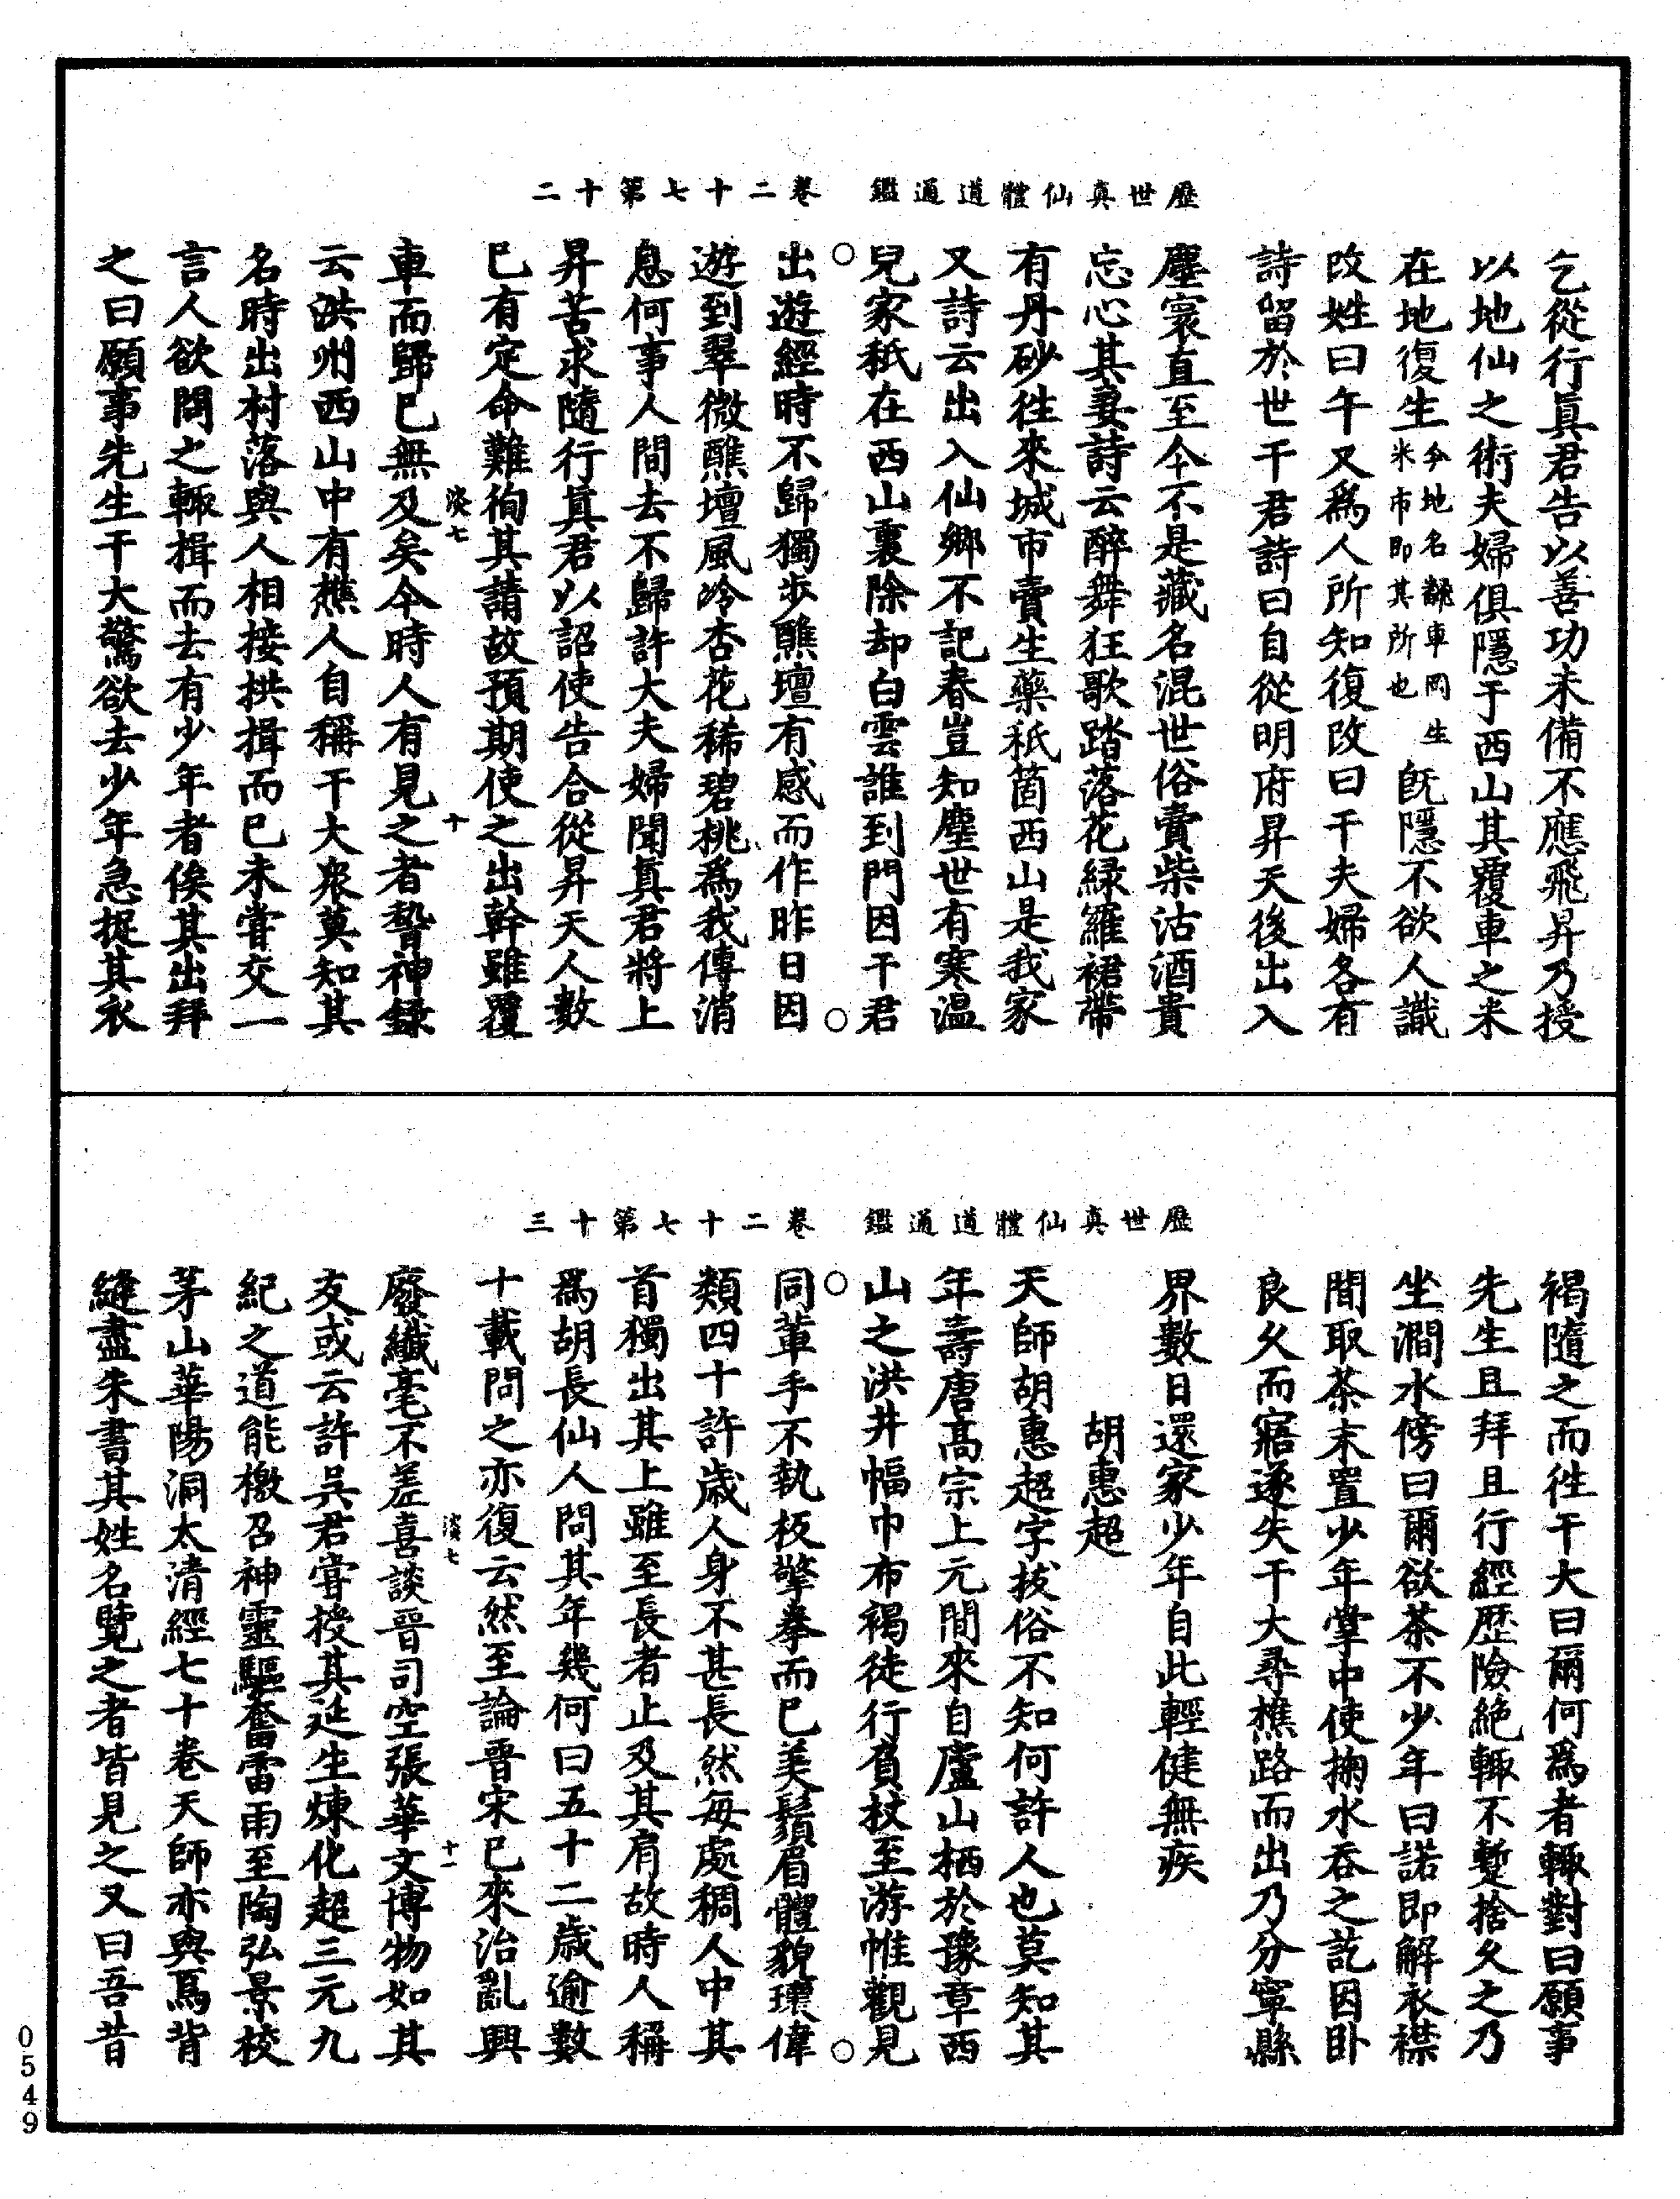 歷世真仙體道通鑑　卷二十七第十二
乞從行眞君告以善功未備不應飛昇乃授
以地仙之術夫婦俱隱于西山其覆車之米
在地復生今地名翻車岡生米市即其所也旣隱不欲人識
改姓曰午又爲人所知復改曰干夫婦各有
詩留於世干君詩曰自從明府昇天後出入
塵寰直至今不是藏名混世俗賣柴沽酒貴
忘心其妻詩云醉舞狂歌踏落花綠羅裙帶
有丹砂往來城市賣生藥秖箇西山是我家
又詩云出入仙鄉不記春豈知塵世有寒温
兒家秖在西山裏除却白雲誰到門因干君
出遊經時不歸獨步醮壇有感而作昨日因
遊到翠微醮壇風冷杏花稀碧桃爲我傳消
息何事人間去不歸許大夫婦聞真君將上
昇苦求隨行真君以詔使告合從昇天人數
已有定命難徇其請故預期使之出幹雖覆
車而歸已無及矣今時人有見之者慹神録
云洪州西山中有樵人自稱干大衆莫知其
名時出村落與人相接拱揖而已未嘗交一
言人欲問之輙揖而去有少年者俟其出拜
之曰願事先生干大驚欲去少年急捉其衣
淡七　十
歷世真仙體道通鑑　卷二十七第十三
褐隨之而往干大曰爾何爲者輙對曰願事
先生且拜且行經歷險絶輙不蹔捨久之乃
坐澗水傍曰爾欲茶不少年曰諾即解衣襟
間取茶末置少年掌中使掬水吞之訖因卧
良久而寤遂失干大尋樵路而出乃分寧縣
界數日還家少年自此輕健無疾
胡惠超
天師胡惠超字拔俗不知何許人也莫知其
年壽唐高宗上元間來自廬山栖於豫章西
山之洪井幅巾布褐徒行負杖至游帷觀見
同輩手不執板擎拳而已美鬚眉體貌瓌偉
類四十許歲人身不甚長然每處稠人中其
首獨出其上雖至長者止及其肩故時人稱
爲胡長仙人問其年幾何曰五十二歲逾數
十載問之亦復云然至論晋宋已來治亂興
廢纖毫不差喜談晋司空張華文博物如其
友或云許吳君嘗授其延生煉化超三元九
紀之道能檄召神靈驅奮雷雨至陶弘景校
茅山華陽洞太清經七十卷天師亦與焉背
縫盡朱書其姓名覽之者皆見之又曰吾昔
淡七　十一
0549